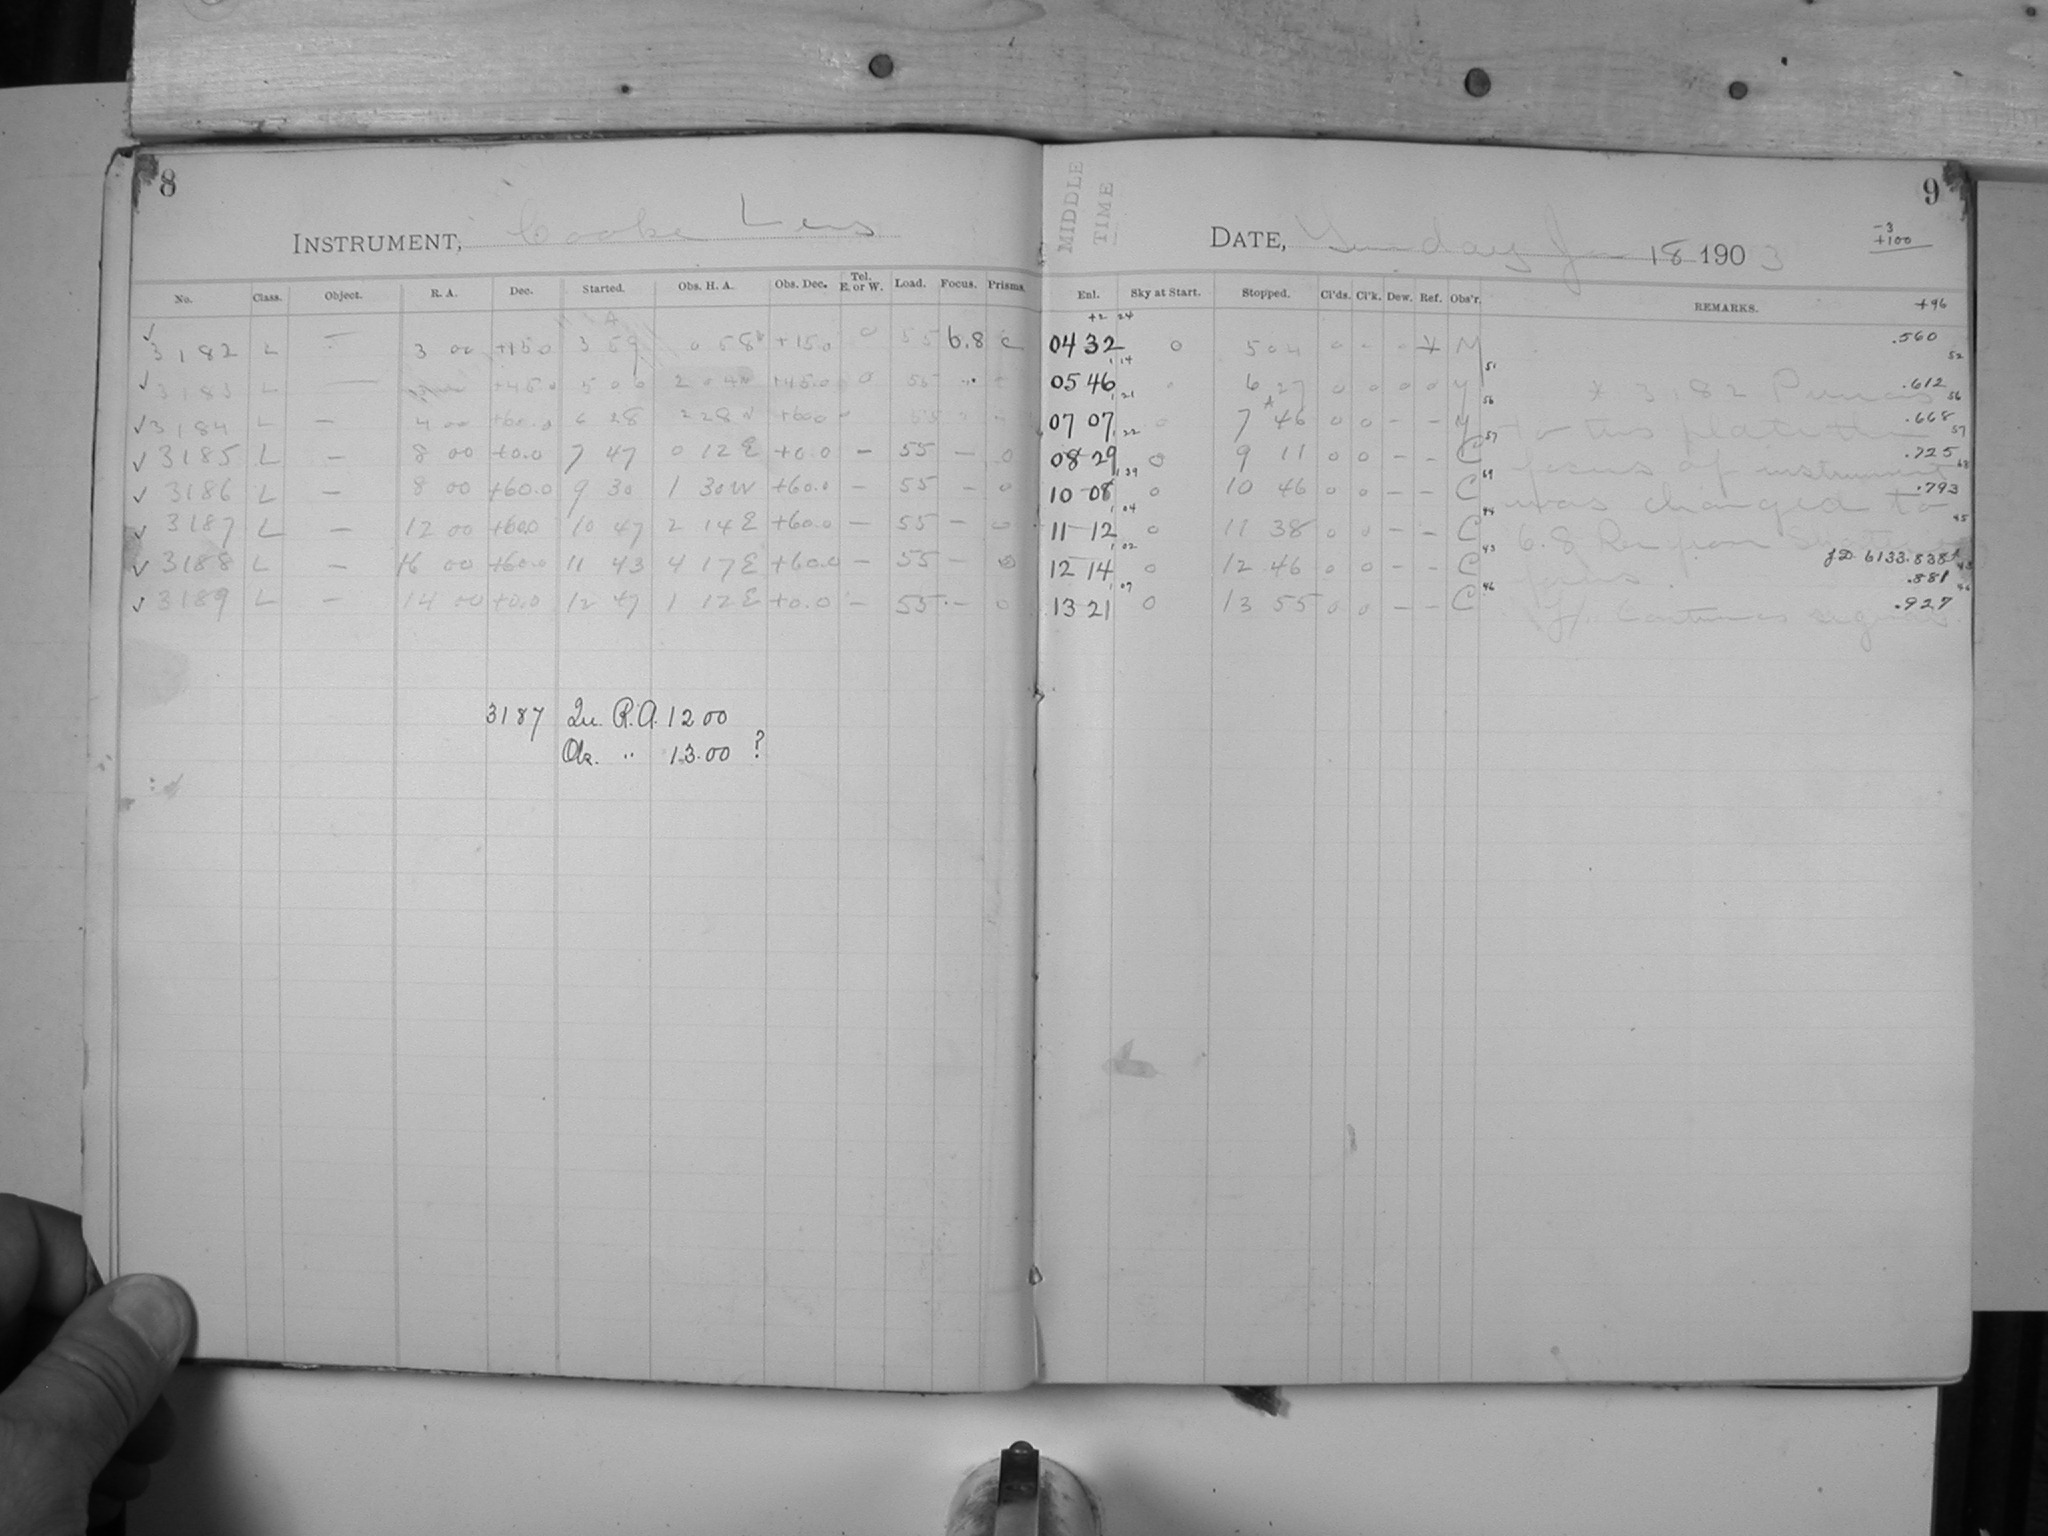 8
INSTRUMENT, Cooke Lens
No. Class. Object. R. A. Dec. Started. Obs. H. A. Obs. Dec. Tel. E. or W. Load. Focus. Prisms.
✓ 3182 L — 3 00 +15.0 3 59 0 58 +15.0 0 55 6.8
✓ 3183 L — +45.0 5 06 2 04 +45.0 0 55 "
✓ 3184 L — 4 00 +60.0 6 28 2 28 +60.0 55
✓ 3185 L — 8 00 +0.0 7 47 0 12 E +0.0 — 55 — 0
✓ 3186 L — 8 00 +60.0 9 30 1 30 W +60.0 — 55 — 0
✓ 3187 L — 12 00 +60.0 10 47 2 14 E +60.0 — 55 — 0
✓ 3188 L — 16 00 +60.0 11 43 4 17 E +60.0 — 55 — 0
✓ 3189 L — 14 00 +0.0 12 47 1 12 E +0.0 — 55 — 0
3187 Qu. R.A. 12 00
Ok. " 13.00 ?
9
MIDDLE TIME
DATE, Sunday Jan 18 1903
-3
+100
Enl. Sky at Start. Stopped. Cl'ds. Cl'k. Dew. Ref. Obs'r. REMARKS. +96
+2 24
04 32 0 5 04 0 - 0 * M .560
1 14 51 52
05 46 6 27 0 0 0 0 M * 3182 Previous .612
1 21 56 56
07 07 0 7 46 0 0 - - M to this plate the .668
1 22 57 57
08 29 0 9 11 0 0 - - C focus of instrument .725
1 39 69 68
10 08 0 10 46 0 0 - - C was changed to .793
1 04 44 45
11 12 0 11 38 0 0 - - C 6.8 from J.D. 6133.838
1 02 43 43
12 14 0 12 46 0 0 - - C lens. .881
1 07 46 46
13 21 0 13 55 0 0 - - C signals .927